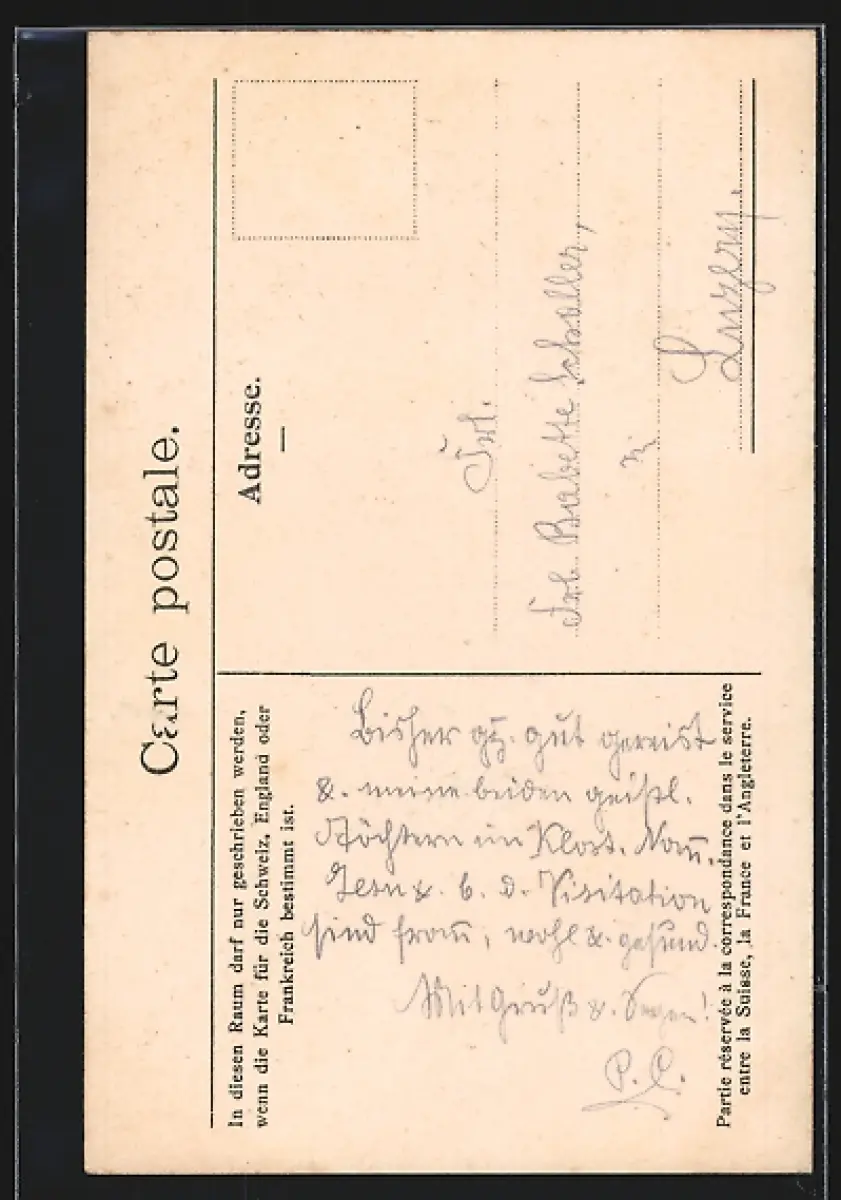 Carte postale.
In diesen Raum darf nur geschrieben werden,
wenn die Karte für die Schweiz, England oder
Frankreich bestimmt ist.
Bisher gz. gut gereist
&. meine beiden geistl.
Töchtern im Klost. Nom̅.
Jesu &. b. d. Visitation
sind from̅, wohl &. gesund.
Mit Gruß &. Segen!
P. C.
Partie réservée à la correspondance dans le service
entre la Suisse, la France et l'Angleterre.
Adresse.
Frl.
Babette Schaller,
in
Luzern.